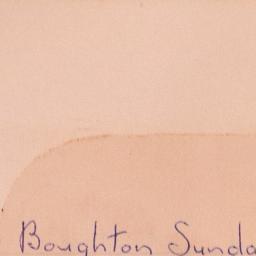 Boughton Sunda